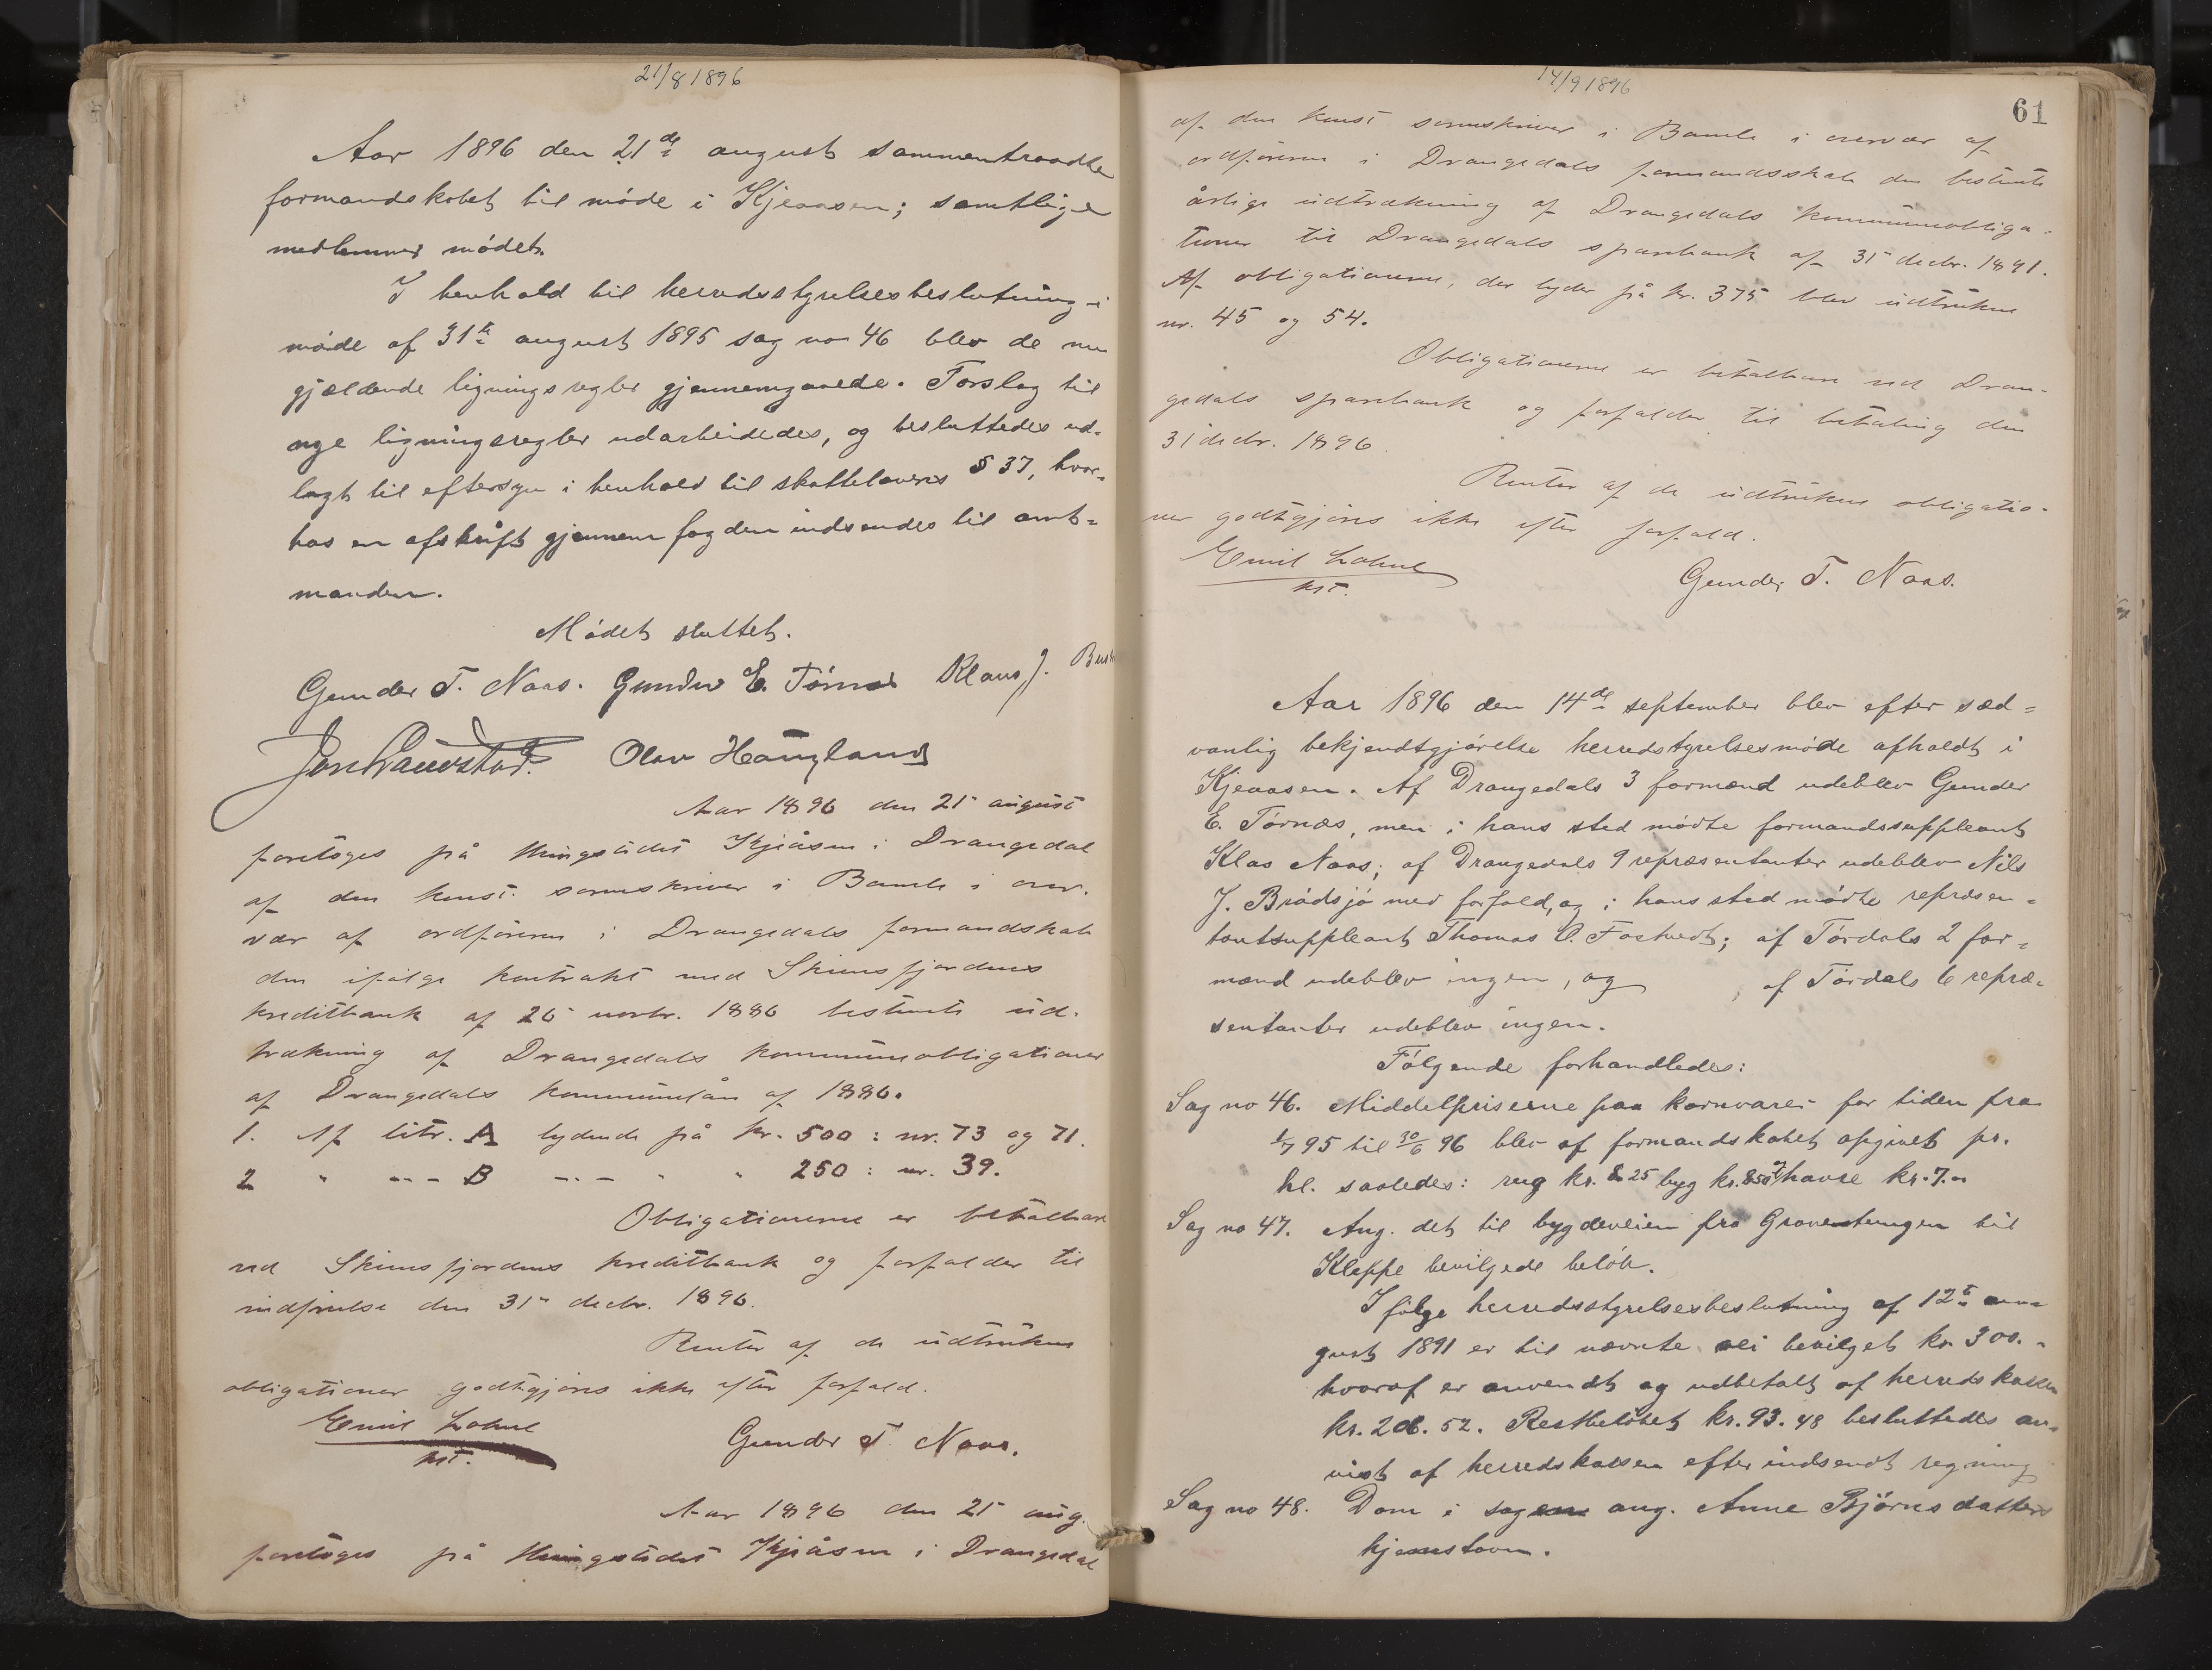 21/8 1896
Aar 1896 den 21de august sammentraadte
formandskabet til møde i Kjeaasen; samtlige
medlemmer mødet.
I henhold til herredsstyrelsesbeslutning i
møde af 31te august 1895 sag no 46 blev de nu
gjældende ligningsregler gjennemgaaede. Forslag til
nye ligningsregler udarbeidedes, og besluttedes ud-
lagt til eftersyn i henhold til skattelovens § 37, hvor-
hos en afskrift gjennem fogden indsendes til amt-
manden.
Mødet sluttet.
Gunder T. Naas. Gunder E. Tørnes Klaus J.
Olav Haugland
Aar 1896 den 21 august
foretoges på thingstedet Kjeåsen i Drangedal
af den konst. sorenskriver i Bamle i over-
vær af ordføreren i Drangedals formandskab
den ifølge kontrakt med Skiensfjordens
kreditbank af 26 novbr. 1886 bestemte ud-
trækning af Drangedals kommuneobligationer
af Drangedals kommunelån af 1886.
1. Af litr. A lydende på kr. 500: nr. 73 og 71.
2 " --- B --- " " 250: nr. 39.
Obligationerne er betalbare
ved Skiensfjordens kreditbank og forfalder til
indfrielse den 31 decbr. 1896.
Renter af de udtrukne
obligationer godtgjøres ikke efter forfald.
Emil Lohne
kst.
Gunder T. Naas.
Aar 1896 den 21 aug.
foretoges på thingstedet Kjeåsen i Drangedal
14/9 1896
61
af den konst sorenskriver i Bamle i overvær af
ordføreren i Drangedals formandsskab den bestemte
årlige udtrækning af Drangedals kommuneobliga-
tioner til Drangedals sparebank af 31 decbr. 1891.
Af obligationerne, der lyder på kr. 375 blev udtrukne
nr. 45 og 54.
Obligationerne er betalbare ved Dran-
gedals sparebank og forfalder til betaling den
31 decbr. 1896.
Renter af de udtrukne obligatio-
ner godtgjøres ikke efter forfald.
Emil Lohne
kst.
Gunder T. Naas.
Aar 1896 den 14de september blev efter sæd-
vanlig bekjendtgjørelse herredstyrelsesmøde afholdt i
Kjeaasen. Af Drangedals 3 formænd udeblev Gunder
E. Tørnæs, men i hans sted mødte formandssuppleant
Klas Naas; af Drangedals 9 repræsentanter udeblev Nils
J. Brødsjø med forfald, og i hans sted mødte repræsen-
tantsuppleant Thomas O. Fostvedt; af Tørdals 2 for-
mænd udeblev ingen, og af Tørdals 6 repræ-
sentanter udeblev ingen.
Følgende forhandledes:
Sag no 46. Middelpriserne paa kornvarer for tiden fra
1/7 95 til 30/6 96 blev af formandskabet opgivet pr.
hl. saaledes: rug kr. 8 25 byg kr. 8 50 og havre kr. 7.
Sag no 47. Ang. det til bygdeveien fra Gravestungen til
Kleppe bevilgede beløb.
Ifølge herredsstyrelsesbeslutning af 12te au-
gust 1891 er til nævnte vei bevilget kr. 300.-
hvoraf er anvendt og udbetalt af herredskassen
kr. 206. 52. Restbeløbet kr. 93. 48 besluttedes an-
vist af herredskassen efter indsendt regning
Sag no 48. Dom i sagen ang. Anne Bjørnsdatters
hjemstavn.